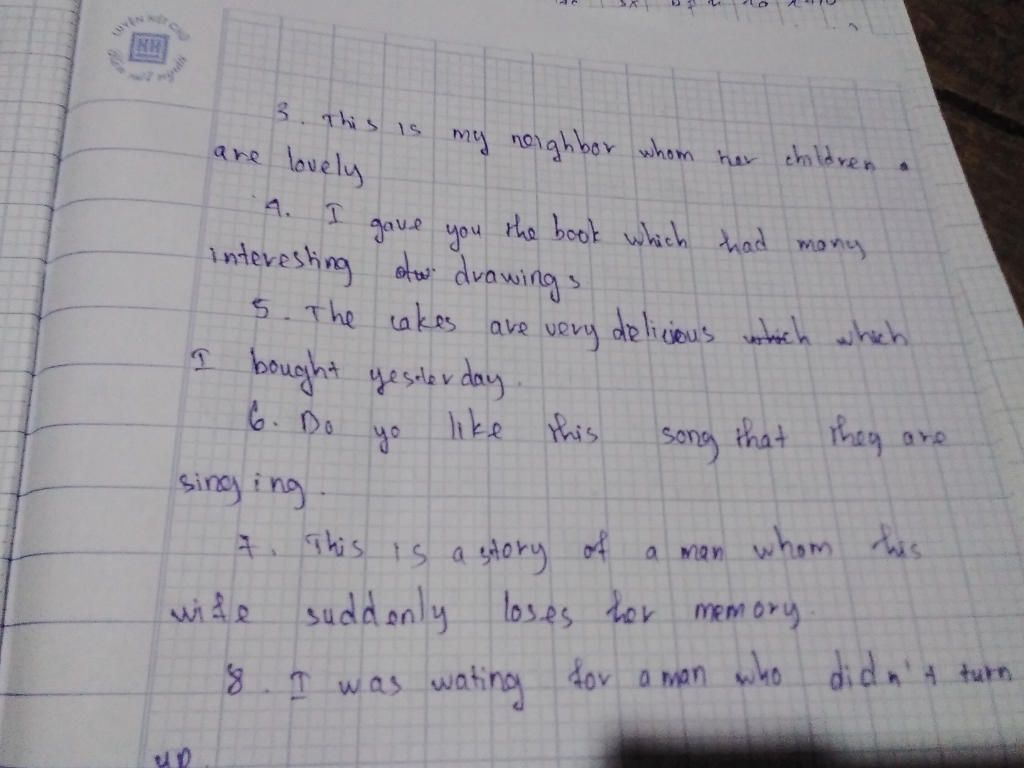 LUYỆN VIẾT CHỮ
NH
3. This is my neighbor whom her children
are lovely
4. I gave you the book which had many
interesting drawings
5. The cakes are very delicious which which
I bought yesterday.
6. Do yo like this song that they are
singing.
7. This is a story of a man whom his
wife suddenly loses her memory.
8. I was wating for a man who didn't turn
up.